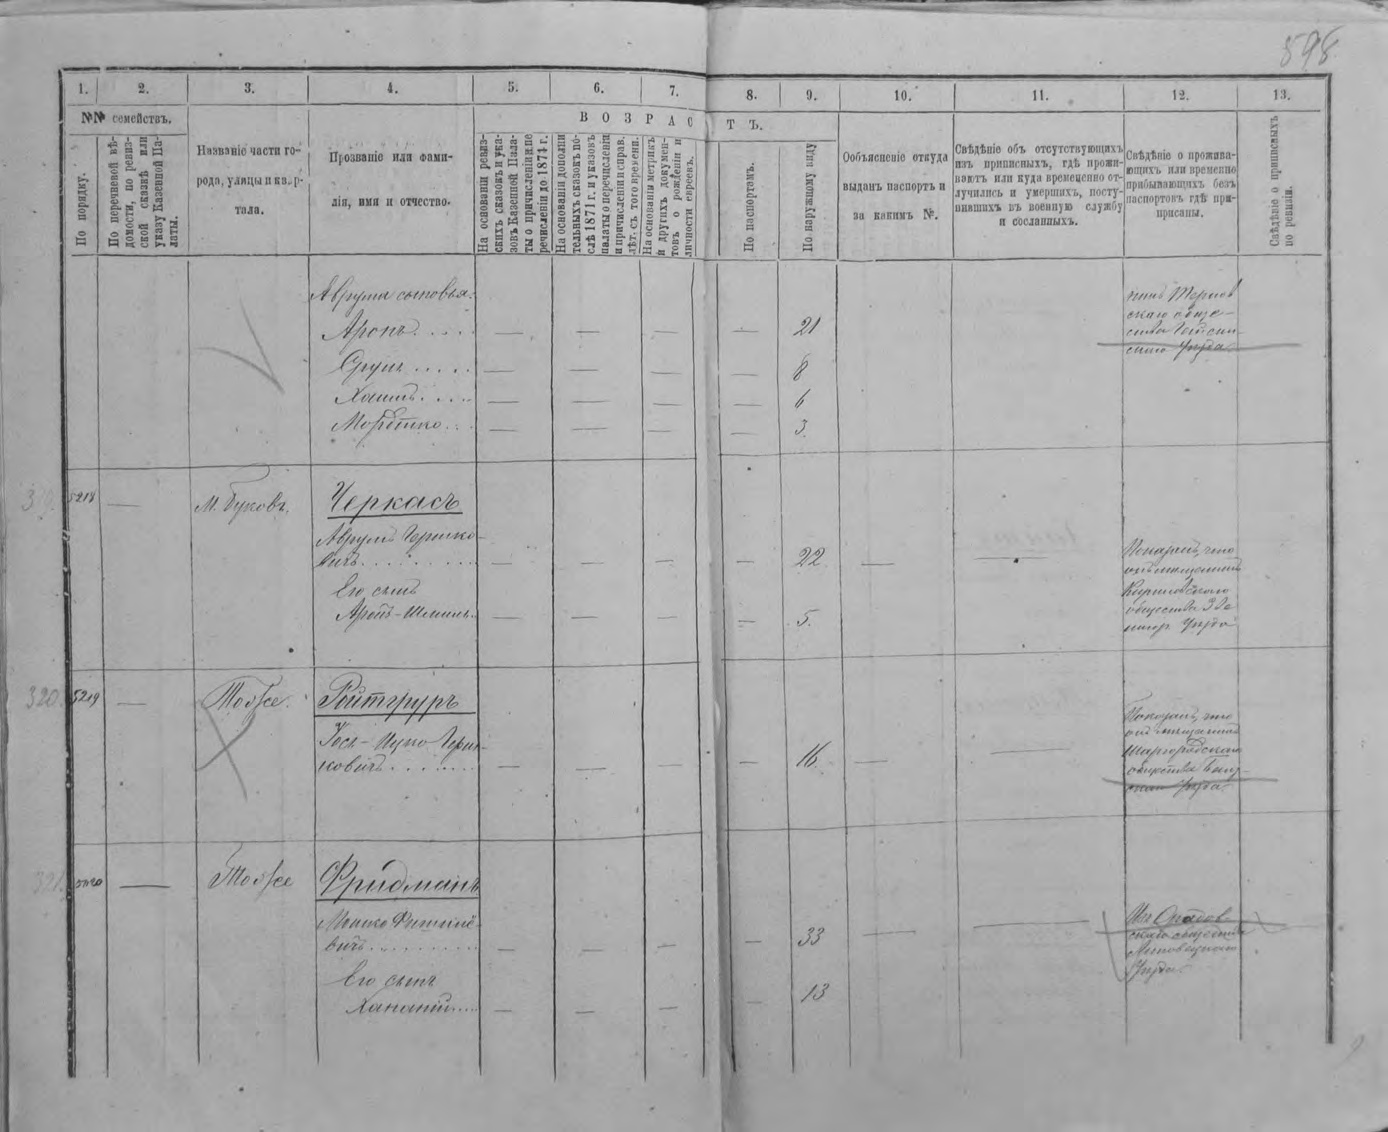 598
1. 2. 3. 4. 5. 6. 7. 8. 9. 10. 11. 12. 13.
№№ семействъ.
В О З Р А С Т Ъ.
По порядку.
По перечневой вѣ-
домости, по ревиз-
ской сказкѣ или
указу Казенной Па-
латы.
Названіе части го-
рода, улицы и квар-
тала.
Прозваніе или фами-
лія, имя и отчество.
На основаніи ревиз-
скихъ сказокъ и ука-
зовъ Казенной Пала-
ты о причисленіи и пе
речисленіи до 1874 г.
На основаніи дополни
тельныхъ сказокъ по-
слѣ 1871 г. и указовъ
палаты о перечисленіи
и причисленіи и справ.
лѣт. съ того времени.
На основаніи метрикъ
и другихъ докумен-
товъ о рожденіи и
личности евреевъ.
По паспортамъ.
По наружному виду
Объясненіе откуда
выданъ паспортъ и
за какимъ №.
Свѣдѣніе объ отсутствующихъ
изъ приписныхъ, гдѣ прожи-
ваютъ или куда временно от-
лучились и умершихъ, посту-
пившихъ въ военную службу
и сосланныхъ.
Свѣдѣніе о прожива-
ющихъ или временно
прибывающихъ безъ
паспортовъ гдѣ при-
писаны.
Свѣдѣніе о приписныхъ
по ревизіи.
Аврума сыновья:
Аронъ 21
Срулъ 8
Хаимъ 6
Мордко 3.
скаго обще-
ства
скаго уѣзда
5218 — М. Буковъ. Черкасъ
Аврумъ Гершко-
вичъ 22
Его сынъ
Аронъ- 5.
Показалъ, что
онъ мѣщанинъ
общества
уѣзда
320. 5219 — Тоже. Ройтгруръ
Іось-Ицко Герш-
ковичъ 16
Показалъ, что
онъ мѣщанинъ
Шаргородскаго
общества
уѣзда
321. — Тоже Фридманъ
Мошко
вичъ 33
Его сынъ
Хананій 13
скаго общества
Липовецкаго
уѣзда